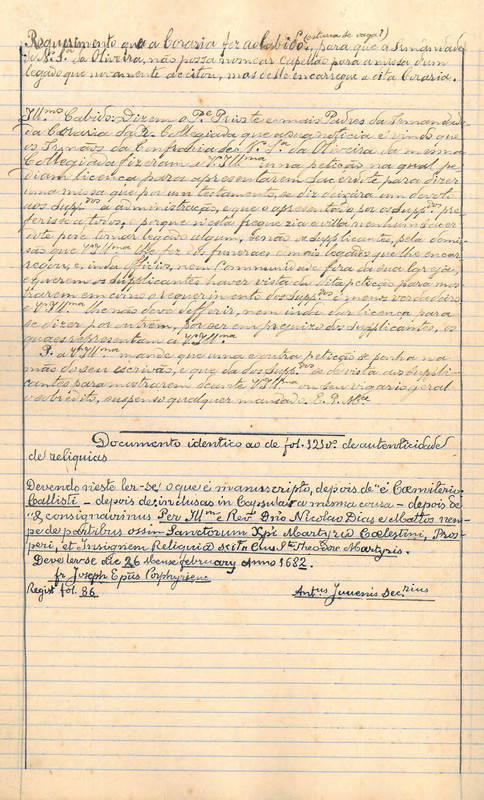 Requerimento que a Coraria fez ao Cabido (estava se vaga?), para que a Irmandade
de N. Sra da Oliveira, não possa nomear capellão para a missa d'um
legado que novamente aceitou, mas o elle encarregue a dita Coraria.
Ill.mo Cabido: Dizem o Pe Prioste e mais Padres da Irmandade
da Coraria da Rl Collegiada que a sua noticia é vindo que
os Irmãos da Confraria de N.a S.ra da Oliveira da mesma
Collegiada fizeram a V. Ill.ma uma petição na qual pe-
diam licença para apresentarem Sacerdote para dizer
uma missa que por um testamento, se diz deixára um devoto
aos Supp.dos a administração, e que o apresentado por os Supp.dos pre-
ferisse a todos, e porque n'esta freguezia e villa nenhum sacer-
dote pode tomar legado algum, senão os supplicantes, pela
são que V.a Ill.ma lhe fez dos funeraes e mais legados que lhe encar-
regou, e, inda officios, nem Communidade fóra da sua Igreja,
e querem os supplicantes haver vista da dita petição para mos-
trarem em como o requerimento dos Supp.dos é menos verdadeiro
e V.a Ill.ma lhe não deve defferir, nem inda dar licença para
se dizer por outrem, por ser em prejuizo dos supplicantes, os
quaes representam a V.a Ill.ma
P. a V.a Ill.ma mande que uma e outra petição se ponha na
mão do seu escrivão, e que da dos Supp.dos se dê vista aos Suppli-
cantes para mostrarem deante V. Ill.ma ou seu vigario geral
o sobredito, suspenso qualquer mandado. E. R. M.ce
Documento identico ao de fol. 121 v. de autenticidade
de reliquias
Devendo neste ler-se o que é manuscripto, depois de "é Cœmiterio
Callisti – depois de: inclusas in Capsula a mesma cousa – depois de
"& consignavimus Per Ill.m e Rev.m Dno Nicolao Dias e Mattos nem-
pe de partibus ossiu Sanctorum Xpi Martyru Cœlestini, Pros-
peri, et Insignem Reliquia Sc.ta Cruris S.ti Theodore Martyris.
Deve ler-se die 26 Mense february Anno 1682.
fr Joseph Epũs Porphyrienc
Regist fol. 86 Antus Juvenis Sec.rius